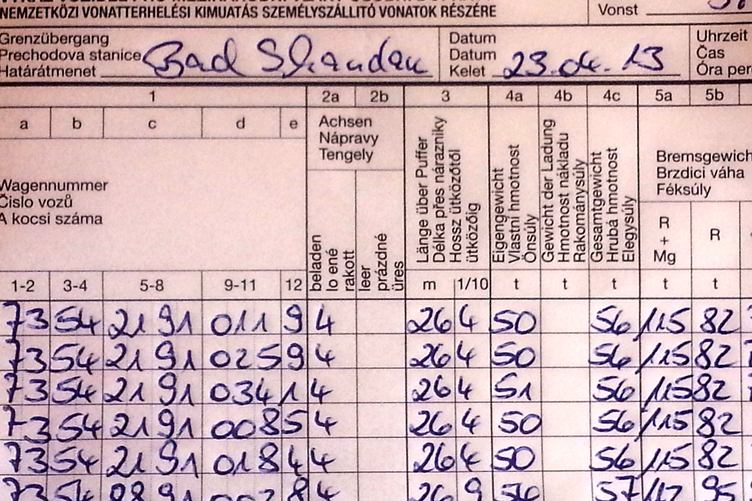 NEMZETKÖZI VONATTERHELÉSI KIMUATÁS SZEMÉLYSZÁLLITÓ VONATOK RÉSZÉRE
Vonst
Grenzübergang
Prechodova stanice
Határátmenet
Bad Shandau
Datum
Datum
Kelet
23.04.13
Uhrzeit
Čas
Óra per
1 2a 2b 3 4a 4b 4c 5a 5b
a b c d e
Achsen
Nápravy
Tengely
Wagennummer
Čislo vozů
A kocsi száma
beladen
lo ené
rakott
leer
prázdné
üres
Länge über Puffer
Délka přes nárazniky
Hossz ütközötöl
ütközőig
Eigengewicht
Vlastni hmotnost
Önsúly
Gewicht der Ladung
Hmotnost nákladu
Rakománysúly
Gesamtgewicht
Hrubá hmotnost
Elegysúly
Bremsgewich
Brzdici váha
Féksúly
R
+
Mg
R
1-2 3-4 5-8 9-11 12 m 1/10 t t t t t
73 54 21 91 011 9 4 26 4 50 56 115 82
73 54 21 91 025 9 4 26 4 50 56 115 82
73 54 21 91 034 1 4 26 4 51 56 115 82
73 54 21 91 008 5 4 26 4 50 56 115 82
73 54 21 91 018 4 4 26 4 50 56 115 82
73 54 26 9 57